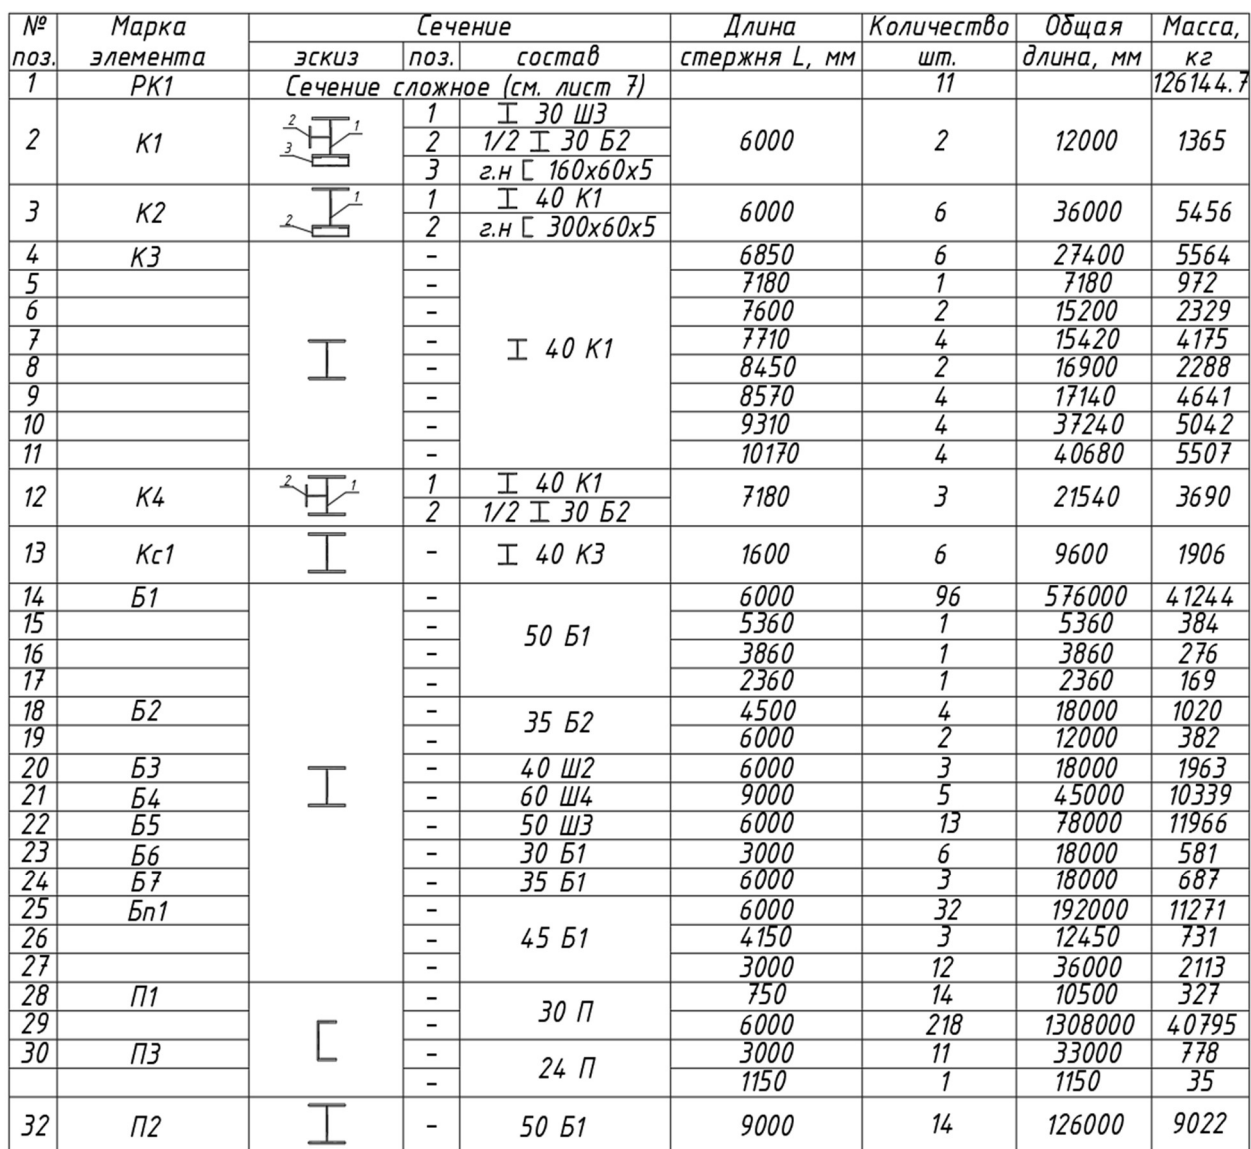 № поз. Марка элемента Сечение Длина стержня L, мм Количество шт. Общая длина, мм Масса, кг
эскиз поз. состав
1 РК1 Сечение сложное (см. лист 7) 11 126144.7
2 К1 2 1 3 1 I 30 Ш3 6000 2 12000 1365
2 1/2 I 30 Б2
3 г.н [ 160х60х5
3 К2 1 2 1 I 40 К1 6000 6 36000 5456
2 г.н [ 300х60х5
4 К3 - I 40 К1 6850 6 27400 5564
5 - 7180 1 7180 972
6 - 7600 2 15200 2329
7 - 7710 4 15420 4175
8 - 8450 2 16900 2288
9 - 8570 4 17140 4641
10 - 9310 4 37240 5042
11 - 10170 4 40680 5507
12 К4 2 1 1 I 40 К1 7180 3 21540 3690
2 1/2 I 30 Б2
13 Кс1 - I 40 К3 1600 6 9600 1906
14 Б1 - 50 Б1 6000 96 576000 41244
15 - 5360 1 5360 384
16 - 3860 1 3860 276
17 - 2360 1 2360 169
18 Б2 - 35 Б2 4500 4 18000 1020
19 - 6000 2 12000 382
20 Б3 - 40 Ш2 6000 3 18000 1963
21 Б4 - 60 Ш4 9000 5 45000 10339
22 Б5 - 50 Ш3 6000 13 78000 11966
23 Б6 - 30 Б1 3000 6 18000 581
24 Б7 - 35 Б1 6000 3 18000 687
25 Бп1 - 45 Б1 6000 32 192000 11271
26 - 4150 3 12450 731
27 - 3000 12 36000 2113
28 П1 - 30 П 750 14 10500 327
29 - 6000 218 1308000 40795
30 П3 - 24 П 3000 11 33000 778
- 1150 1 1150 35
32 П2 - 50 Б1 9000 14 126000 9022